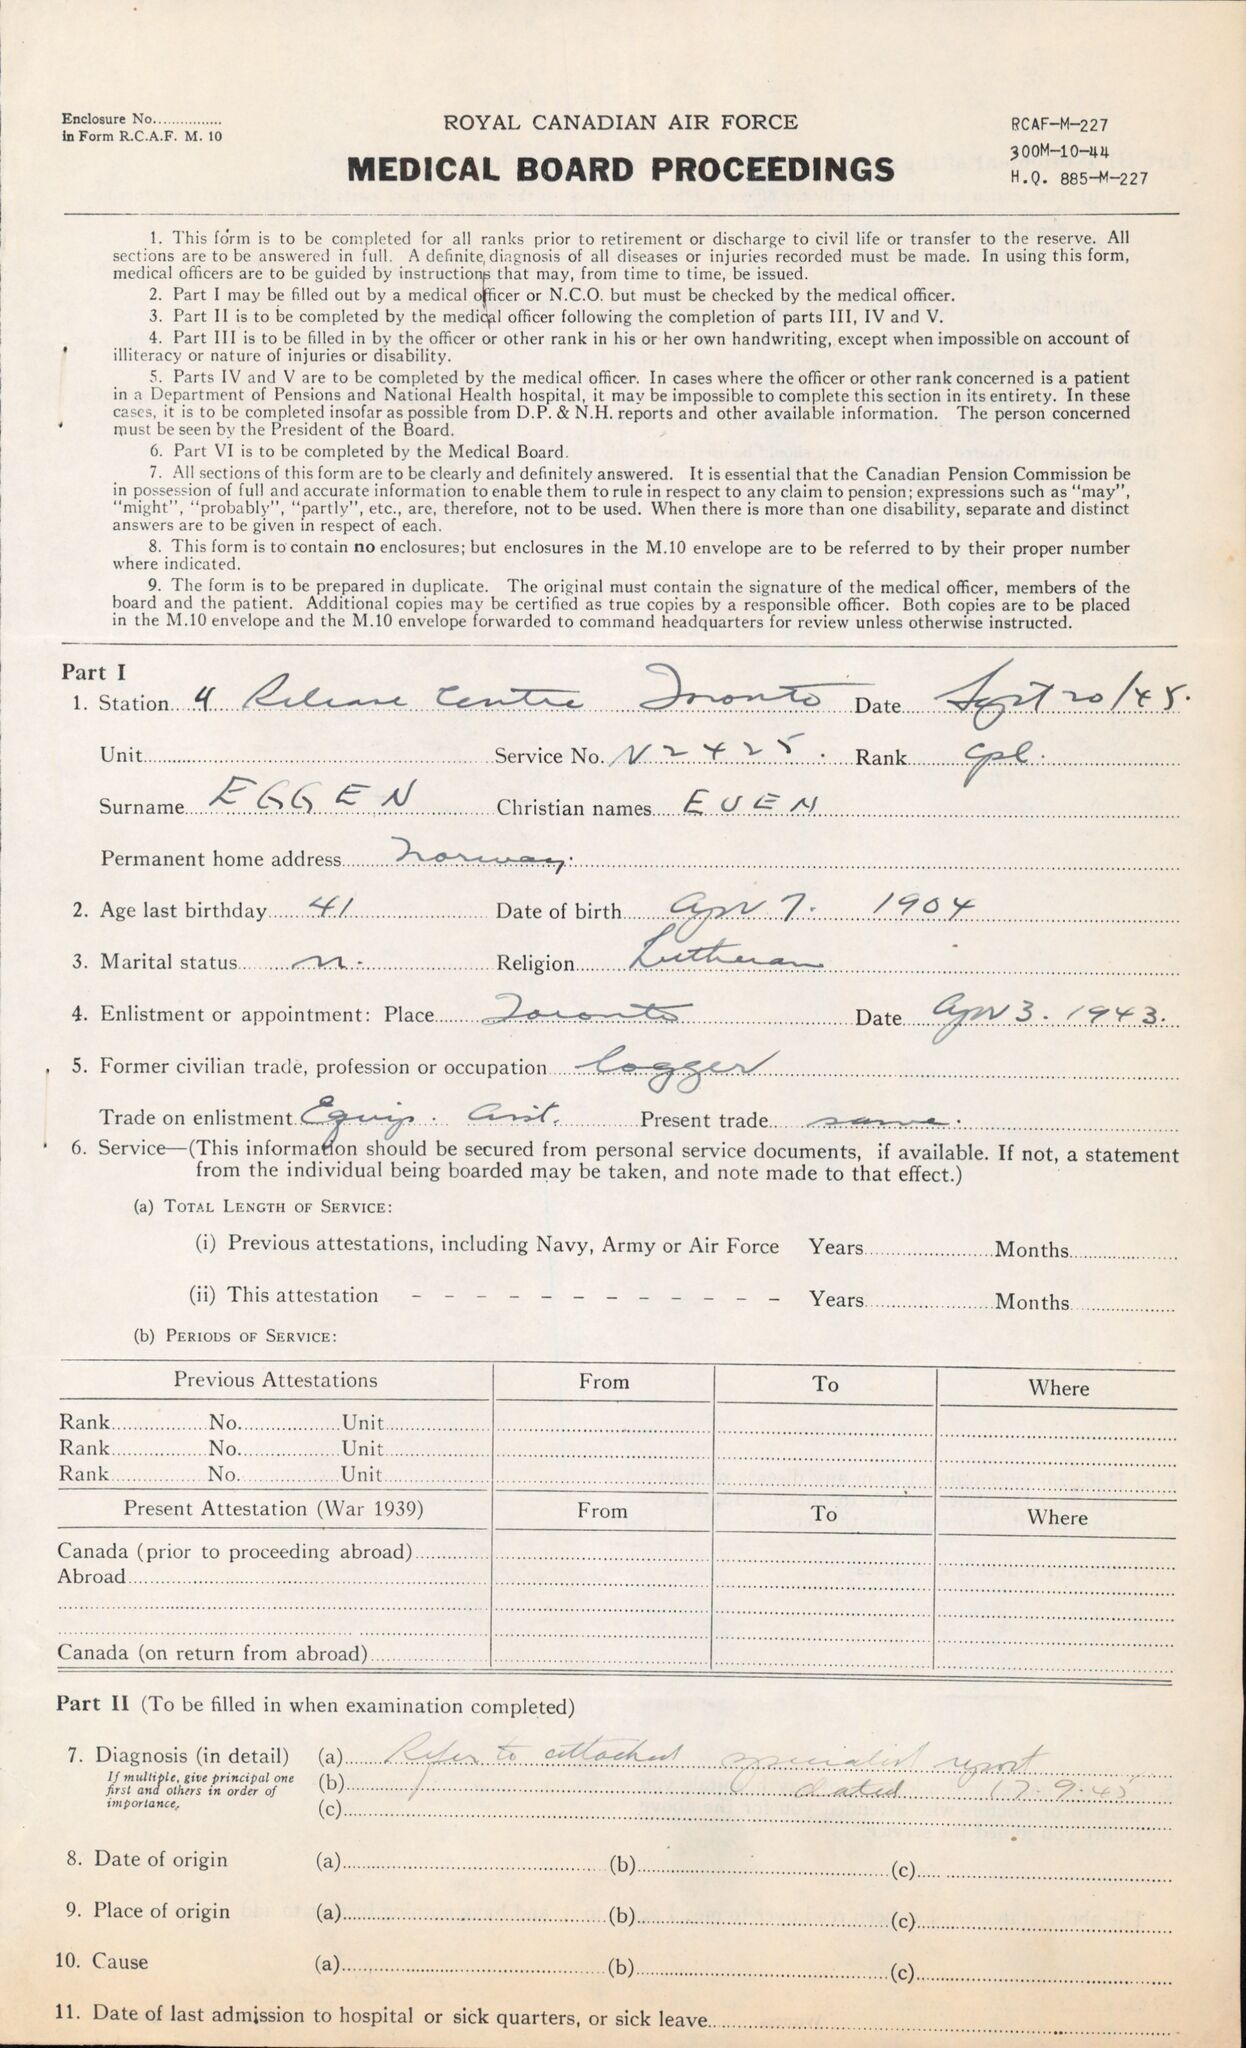 Enclosure No...............
in Form R.C.A.F. M. 10
ROYAL CANADIAN AIR FORCE
MEDICAL BOARD PROCEEDINGS
RCAF-M-227
300M-10-44
H.Q. 885-M-227
1. This form is to be completed for all ranks prior to retirement or discharge to civil life or transfer to the reserve. All
sections are to be answered in full. A definite diagnosis of all diseases or injuries recorded must be made. In using this form,
medical officers are to be guided by instructions that may, from time to time, be issued.
2. Part I may be filled out by a medical officer or N.C.O. but must be checked by the medical officer.
3. Part II is to be completed by the medical officer following the completion of parts III, IV and V.
4. Part III is to be filled in by the officer or other rank in his or her own handwriting, except when impossible on account of
illiteracy or nature of injuries or disability.
5. Parts IV and V are to be completed by the medical officer. In cases where the officer or other rank concerned is a patient
in a Department of Pensions and National Health hospital, it may be impossible to complete this section in its entirety. In these
cases, it is to be completed insofar as possible from D.P. & N.H. reports and other available information. The person concerned
must be seen by the President of the Board.
6. Part VI is to be completed by the Medical Board.
7. All sections of this form are to be clearly and definitely answered. It is essential that the Canadian Pension Commission be
in possession of full and accurate information to enable them to rule in respect to any claim to pension; expressions such as "may",
"might", "probably", "partly", etc., are, therefore, not to be used. When there is more than one disability, separate and distinct
answers are to be given in respect of each.
8. This form is to contain no enclosures; but enclosures in the M.10 envelope are to be referred to by their proper number
where indicated.
9. The form is to be prepared in duplicate. The original must contain the signature of the medical officer, members of the
board and the patient. Additional copies may be certified as true copies by a responsible officer. Both copies are to be placed
in the M.10 envelope and the M.10 envelope forwarded to command headquarters for review unless otherwise instructed.
Part I
1. Station 4 Release Centre Toronto Date Sept 20/45.
Unit Service No. N2425. Rank Cpl.
Surname EGGEN Christian names EVEN
Permanent home address Norway.
2. Age last birthday 41 Date of birth Apr 7. 1904
3. Marital status m. Religion Lutheran
4. Enlistment or appointment: Place Toronto Date Apr 3. 1943.
5. Former civilian trade, profession or occupation logger
Trade on enlistment Equip. Asst. Present trade same.
6. Service—(This information should be secured from personal service documents, if available. If not, a statement
from the individual being boarded may be taken, and note made to that effect.)
(a) TOTAL LENGTH OF SERVICE:
(i) Previous attestations, including Navy, Army or Air Force Years Months
(ii) This attestation - - - - - - - - - - - - Years Months
(b) PERIODS OF SERVICE:
Previous Attestations From To Where
Rank No. Unit
Rank No. Unit
Rank No. Unit
Present Attestation (War 1939) From To Where
Canada (prior to proceeding abroad)
Abroad
Canada (on return from abroad)
Part II (To be filled in when examination completed)
7. Diagnosis (in detail) (a) Refer to attached specialist report
If multiple, give principal one
first and others in order of
importance.
(b) dated 17.9.45
(c)
8. Date of origin (a) (b) (c)
9. Place of origin (a) (b) (c)
10. Cause (a) (b) (c)
11. Date of last admission to hospital or sick quarters, or sick leave